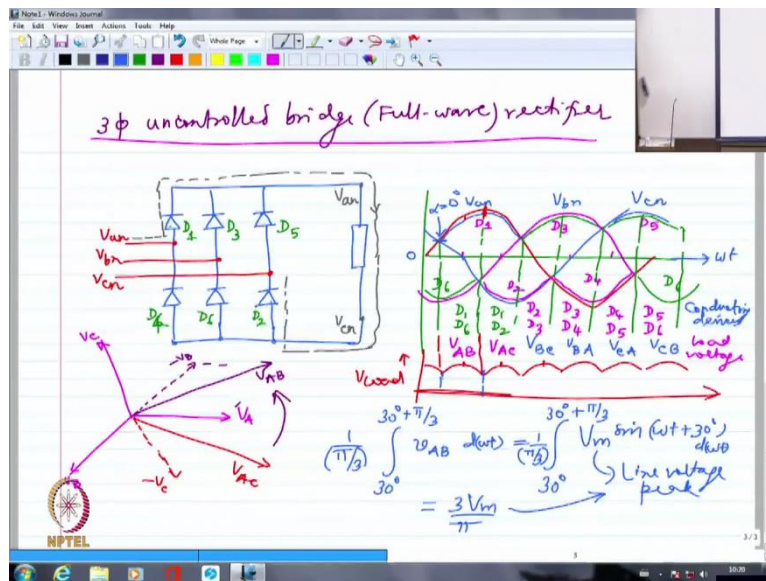 Note1 - Windows Journal
File Edit View Insert Actions Tools Help
Whole Page
B I
3ϕ uncontrolled bridge (Full-wave) rectifier
Van
Vbn
Vcn
D1 D3 D5
D4 D6 D2
Van
Vcn
α=0° Van Vbn Vcn
D1 D3 D5
0 ωt
D6 D2 D4 D6
D1 D1 D2 D3 D4 D5 Conducting
D6 D2 D3 D4 D5 D6 devices
VAB VAC VBC VBA VCA VCB Load voltage
Vload
VC
-VB
VAB
VA
VAC
-VC
1/(π/3) ∫ 30° 30°+π/3 vAB d(ωt) = 1/(π/3) ∫ 30° 30°+π/3 Vm sin(ωt+30°) d(ωt)
Line voltage peak
= 3Vm/π
NPTEL
3/3
3
10:20